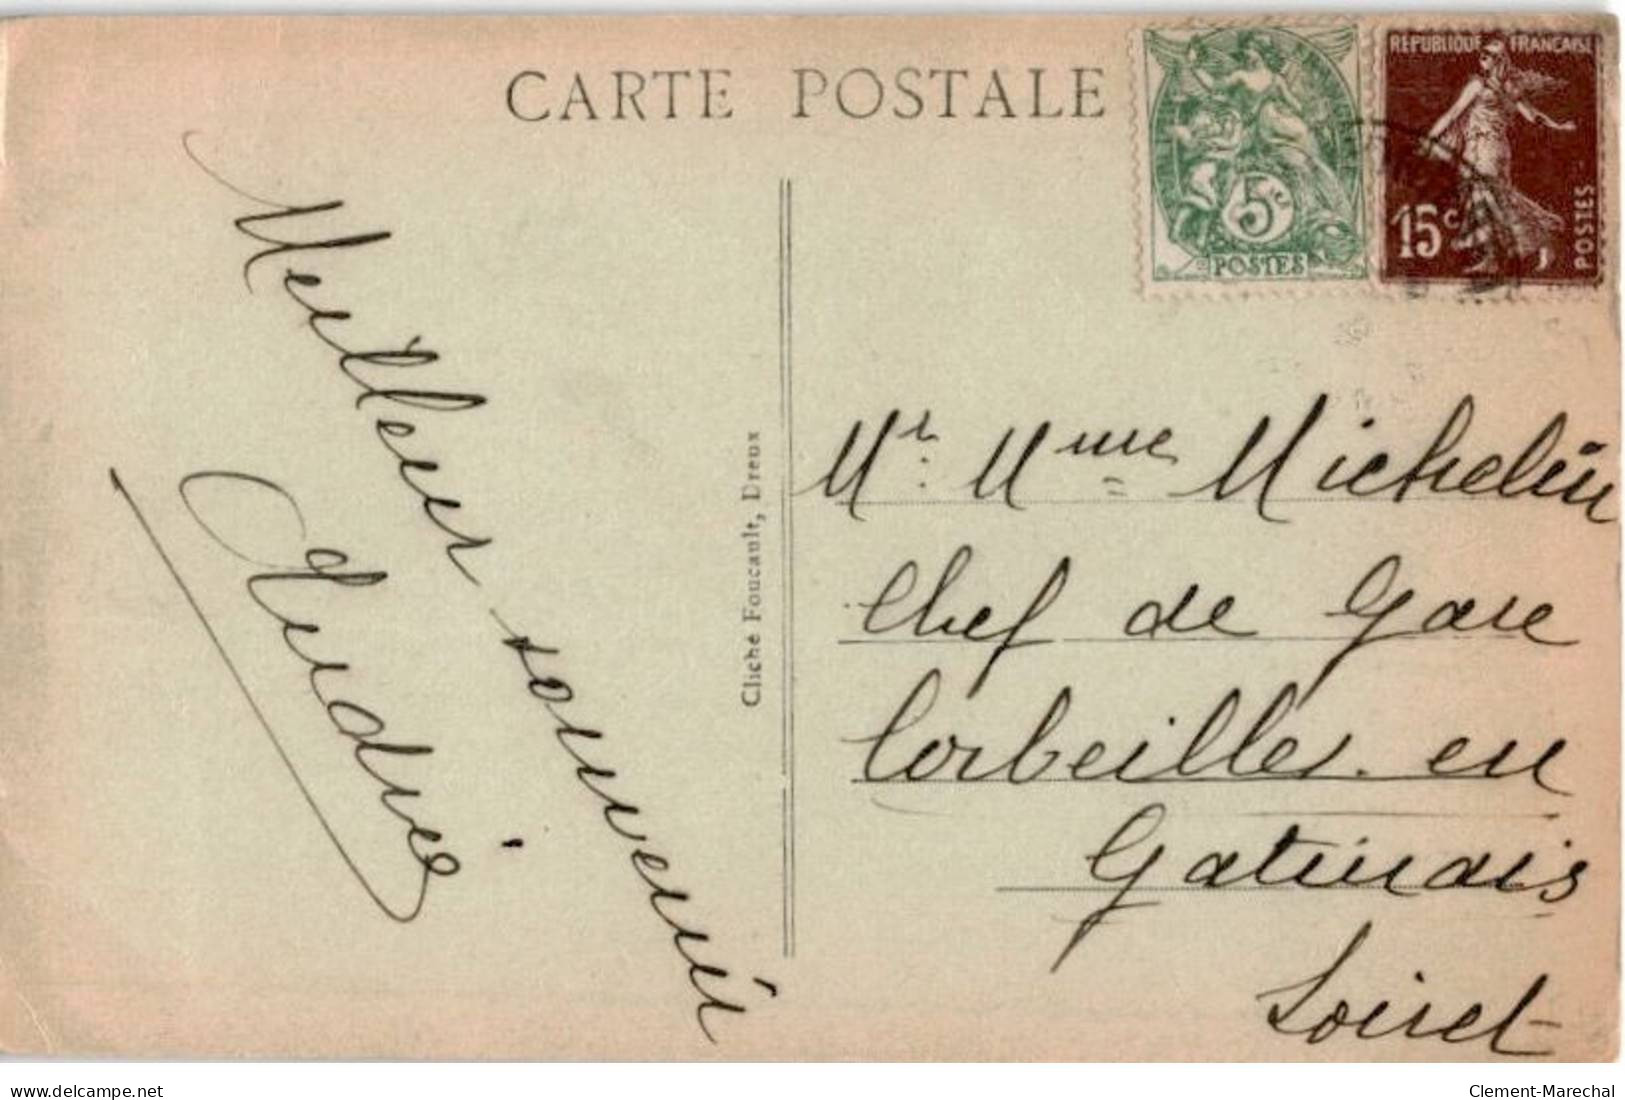 CARTE POSTALE
5c
POSTES
REPUBLIQUE FRANCAISE
15c
POSTES
Meilleur souvenir
Andrée
Cliché Foucault, Dreux
Mr. Mme Michelin
Chef de Gare
Corbeilles en
Gatinais
Loiret
delcampe.net
Clement-Marechal